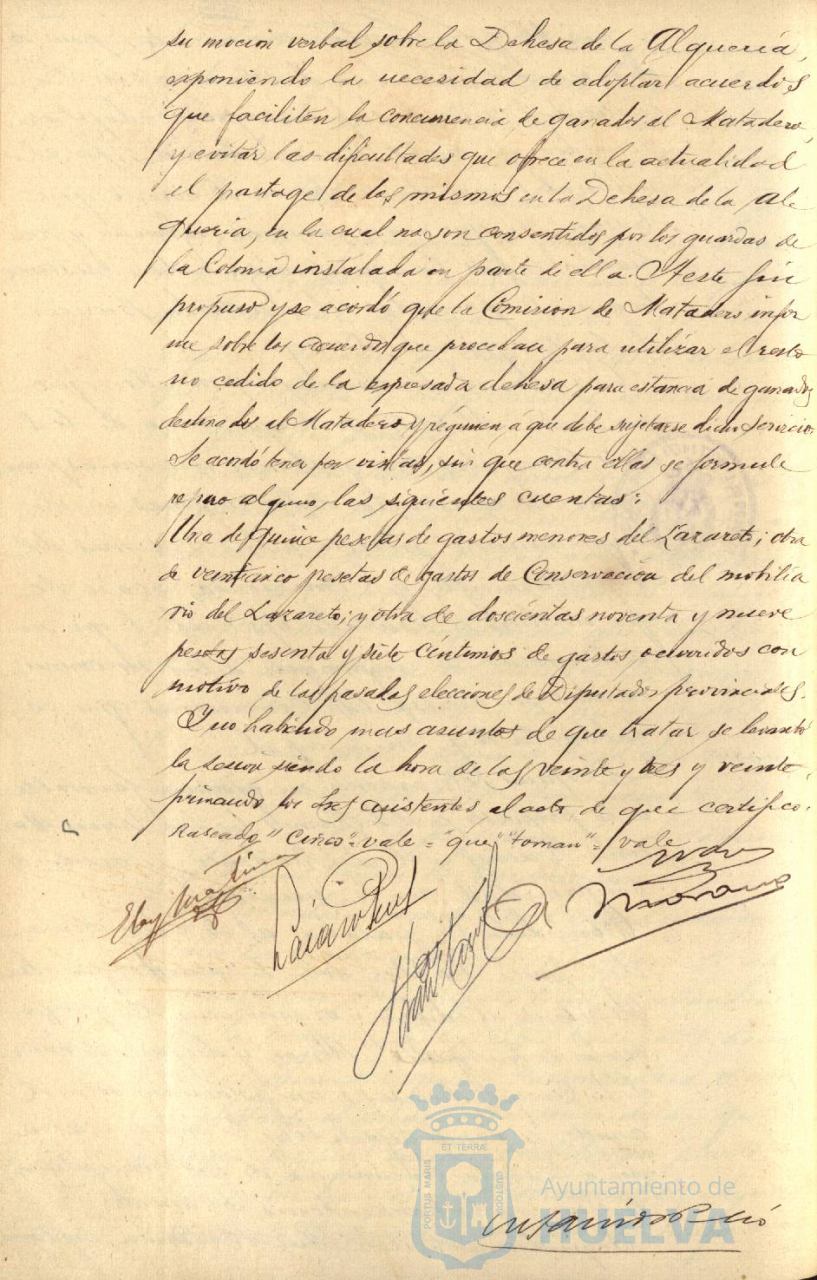 su moción verbal sobre la Dehesa de la Alquería,
exponiendo la necesidad de adoptar acuerdos
que faciliten la concurrencia de ganados al Matadero,
y evitar las dificultades que ofrece en la actualidad
el pastoge de los mismos en la Dehesa de la Al
quería, en la cual no son consentidos por los guardas de
la Colonia instalada en parte de ella. A este fin
propuso y se acordó que la Comisión de Matadero infor
me sobre los acuerdos que procedan para utilizar el resto
no cedido de la expresada dehesa para estancia de ganados
destinados al Matadero y régimen á que debe sujetarse dicho servicio.
Se acordó tener por vistas, sin que contra ellas se formule
reparo alguno, las siguientes cuentas:
Una de quince pesetas de gastos menores del Lazareto; otra
de veinticinco pesetas de gastos de Conservación del mobilia
rio del Lazareto; y otra de doscientas noventa y nueve
pesetas sesenta y siete céntimos de gastos ocurridos con
motivo de las pasadas elecciones de Diputados provinciales.
Y no habiendo mas asuntos de que tratar se levantó
la sesión siendo la hora de las veinte y tres y veinte,
firmando los Sres asistentes al acto de que certifico.
Raseado "Cinco" = vale = "que" "toman" = vale
Eloy Martin
Moreno
ET TERRÆ
PORTUS MARIS
CUSTODIA
Ayuntamiento de
HUELVA